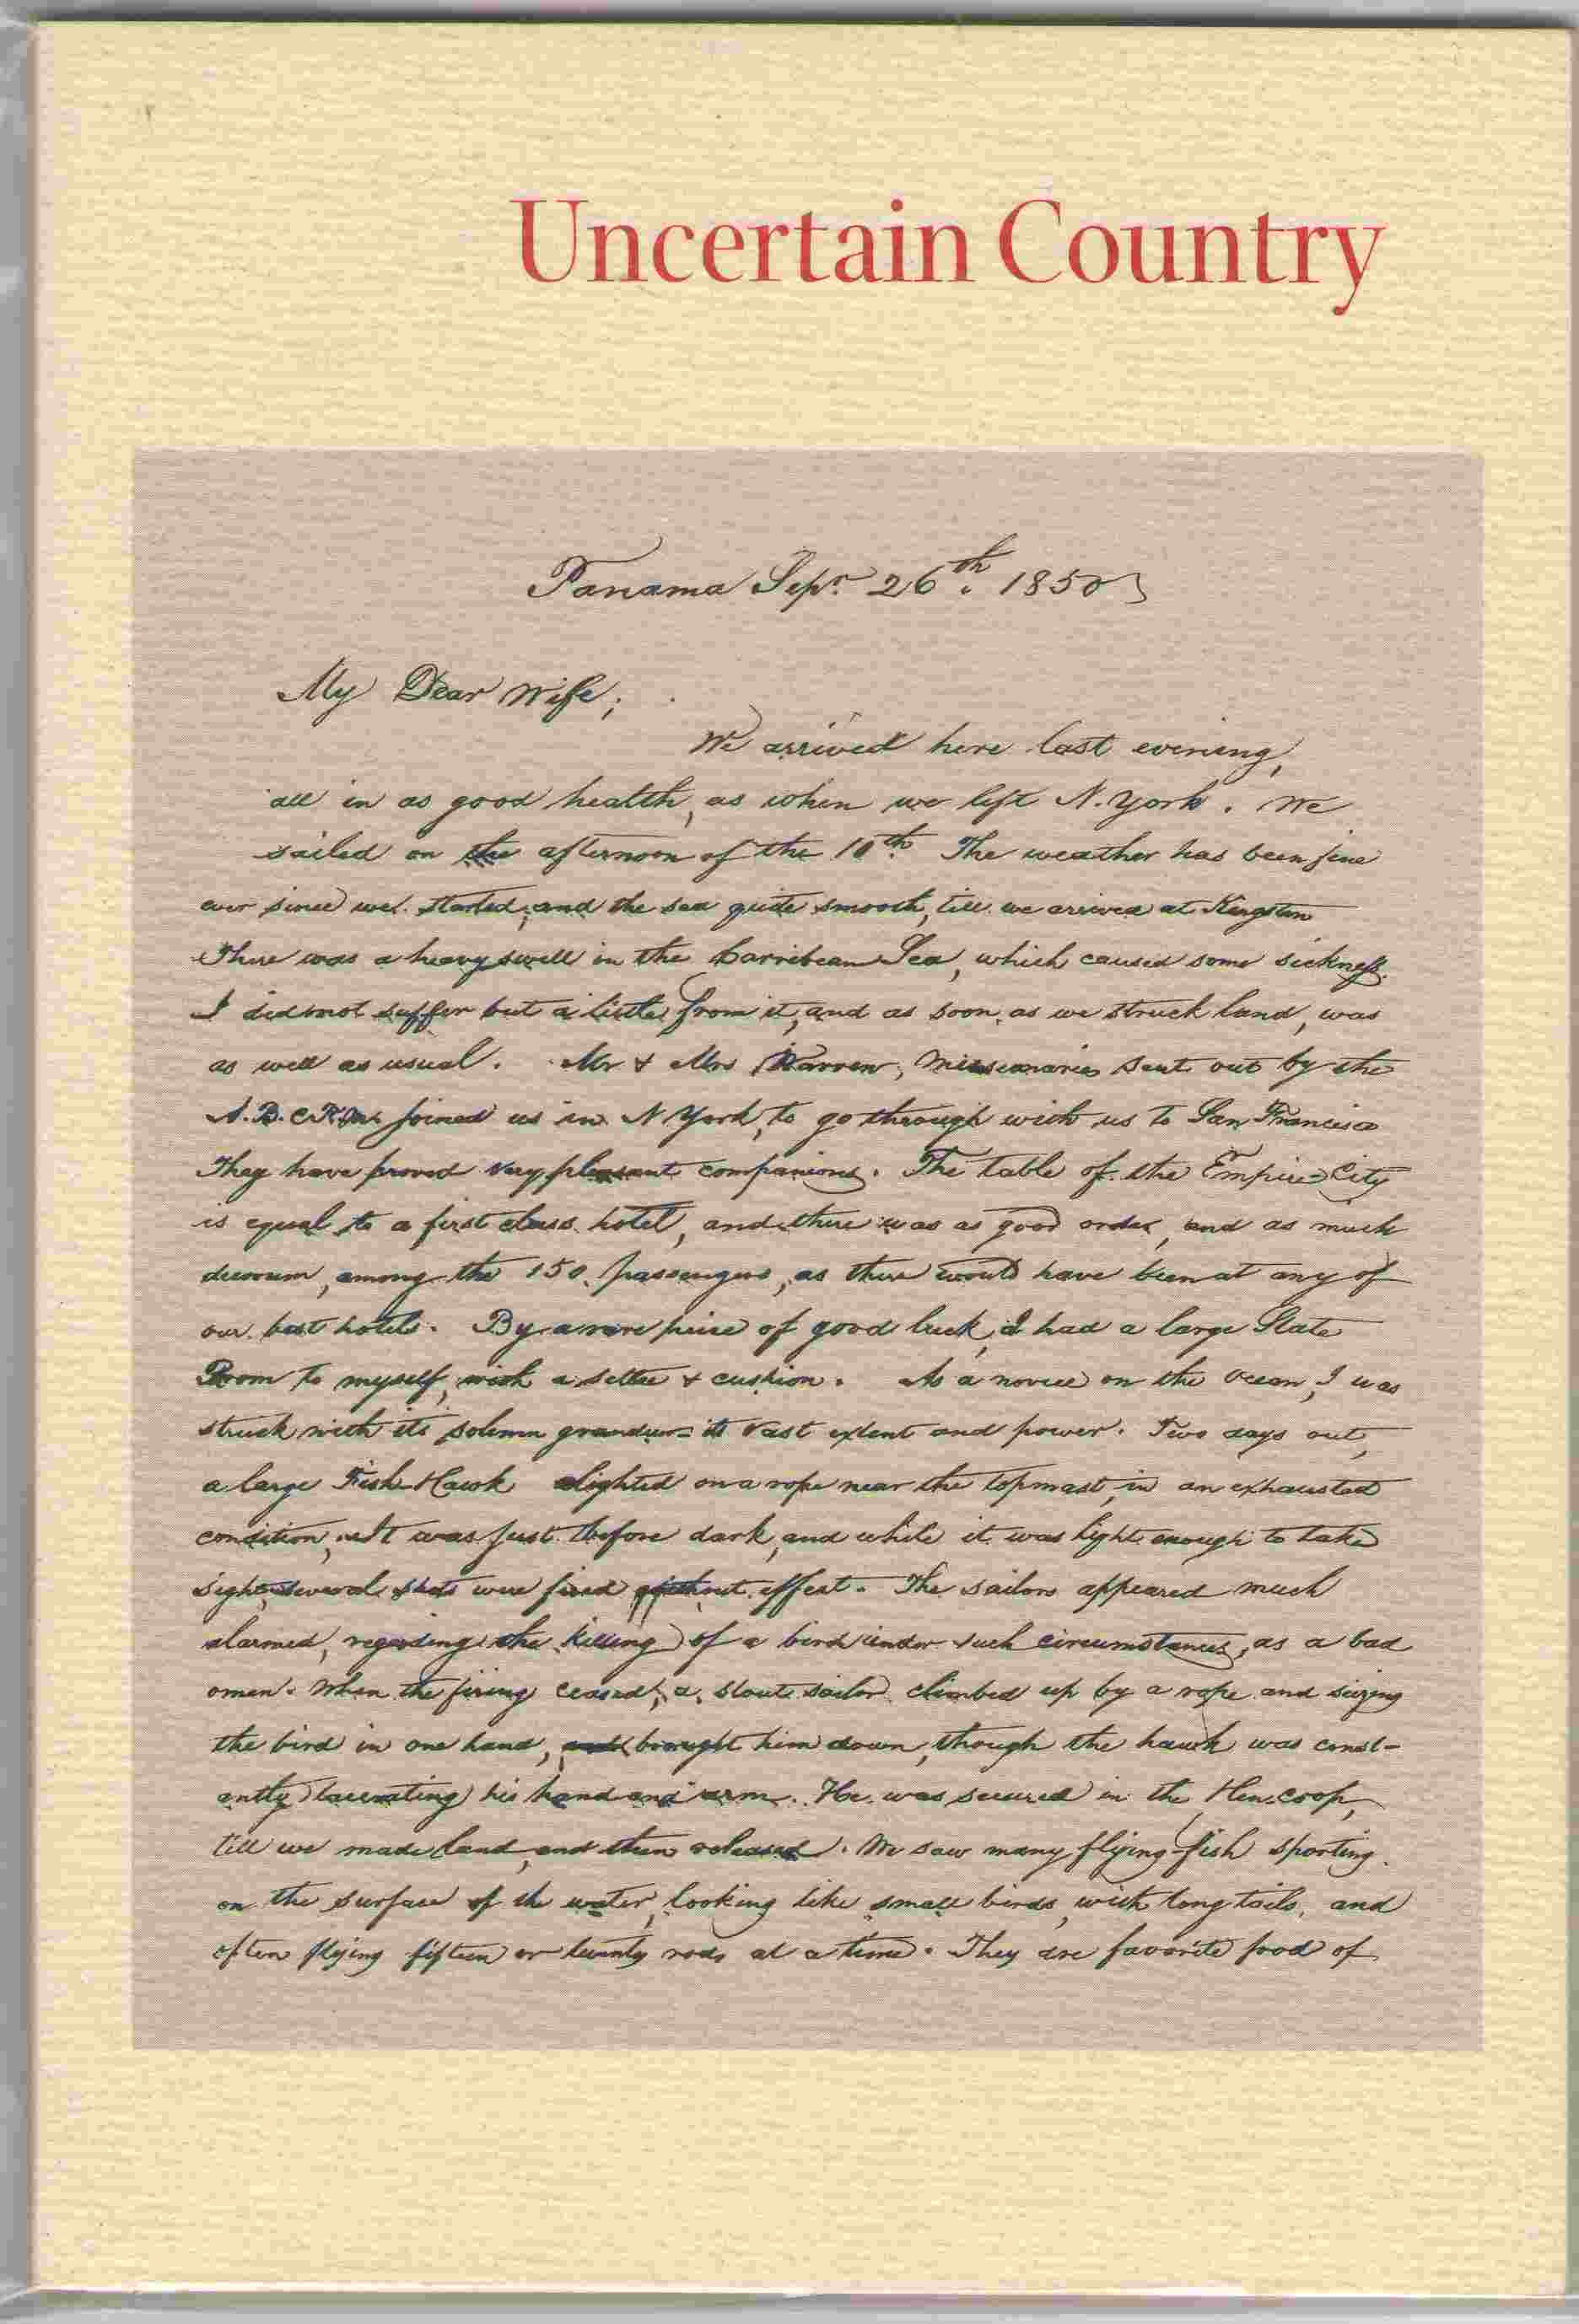 Uncertain Country
Panama Sepr. 26th. 1850
My Dear Wife;
We arrived here last evening,
all in as good health, as when we left N. York. We
sailed on the afternoon of the 10th. The weather has been fine
ever since we started, and the sea quite smooth, till we arrived at Kingston
There was a heavy swell in the Carribean Sea, which caused some sickness.
I did not suffer but a little from it, and as soon as we struck land, was
as well as usual. Mr & Mrs Warren, Missionaries sent out by the
joined us in N York, to go through with us to San Francisco
They have proved very pleasant companions. The table of the Empire City
is equal to a first class hotel, and there was as good order, and as much
decorum, among the 150 passengers, as there would have been at any of
our best hotels. By a rare peice of good luck, I had a large State
Room to myself, with a settee & cushion. As a novice on the Ocean, I was
struck with its solemn grandeur its vast extent and power. Two days out,
a large Fish-Hawk alighted on a rope near the topmast, in an exhausted
condition, It was just before dark, and while it was light enough to take
sight, several shots were fired without effect. The sailors appeared much
alarmed, regarding the killing of a bird under such circumstances, as a bad
omen. When the firing ceased, a stout sailor climbed up by a rope and siezing
the bird in one hand, brought him down, though the hawk was const-
antly lacerating his hand and arm. He was secured in the Hen.coop,
till we made land, and then released. We saw many flying-fish sporting
on the surface of the water, looking like small birds, with long tails, and
often flying fifteen or twenty rods at a time. They are favorite food of